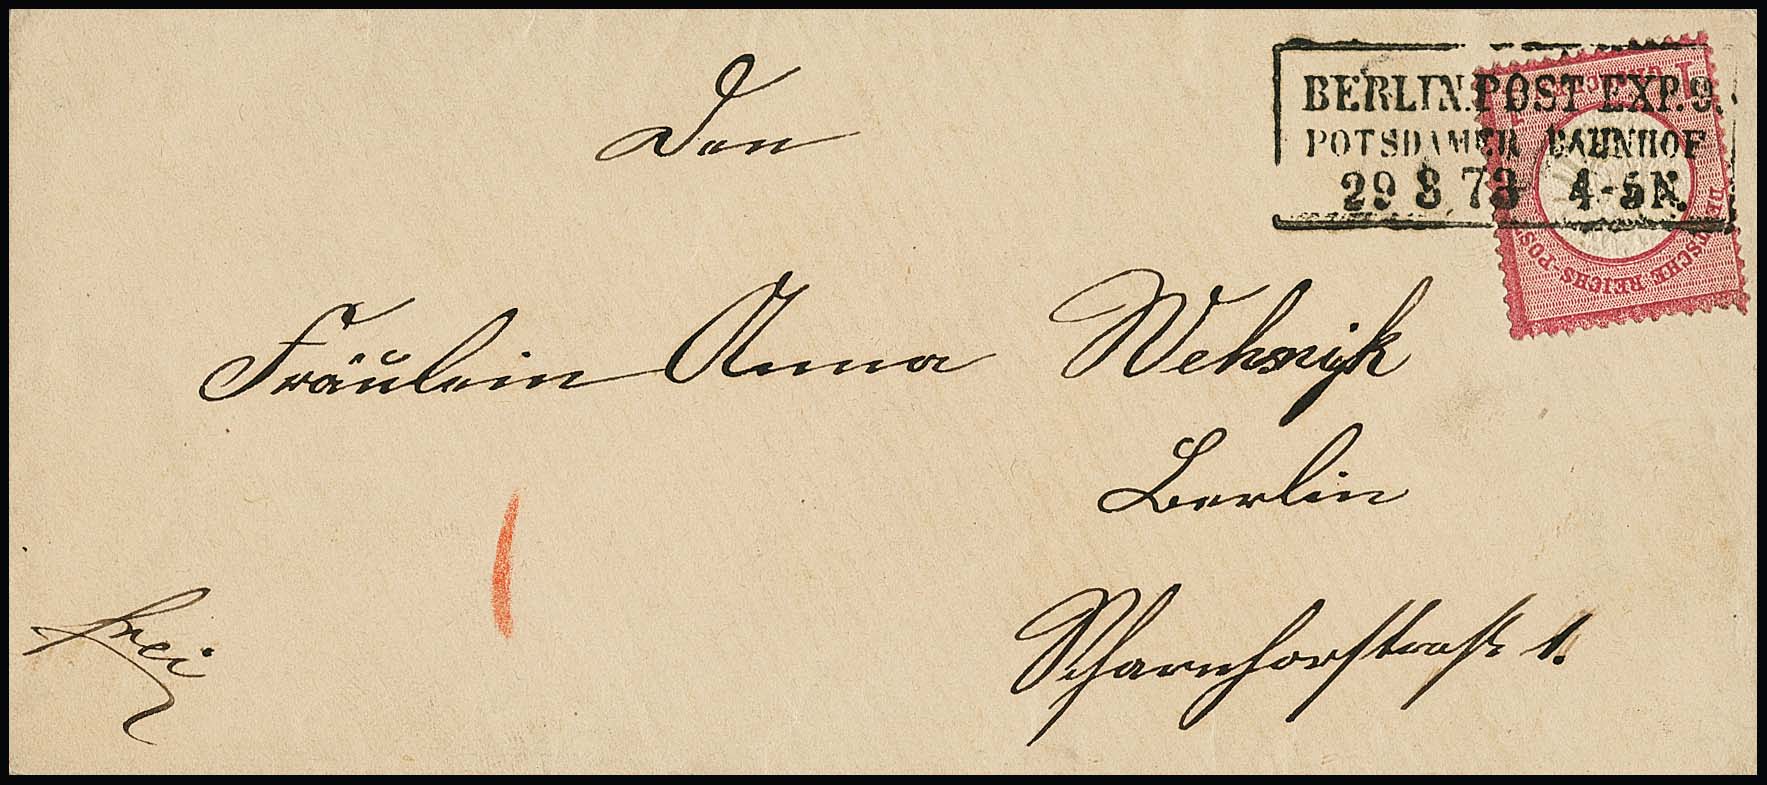 BERLIN.POST EXP.9.
POTSDAMER BAHNHOF
29 8 73 4-5N.
1
DEUTSCHE REICHS-POST
Den
Fräulein Anna
Berlin
Scharnhorststraße 1.
frei